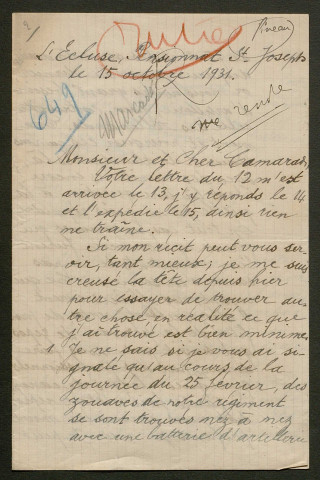 L'Ecluse, Pensionnat St Joseph
le 15 octobre 1931.
649
me rendre
Monsieur et Cher Camarade,
Votre lettre du 12 m'est
arrivée le 13, j'y réponds le 14
et l'expédie le 15, ainsi rien
ne traîne.
Si mon récit peut vous ser-
vir, tant mieux; je me suis
creusé la tête depuis hier
pour essayer de trouver au-
tre chose, en réalité ce que
j'ai trouvé est bien minime.
1. Je ne sais si je vous ai si-
gnalé qu'au cours de la
journée du 25 février, des
zouaves de notre régiment
se sont trouvés nez à nez
avec une batterie d'artillerie